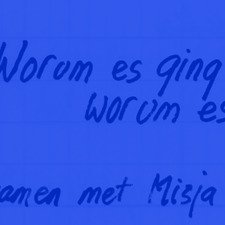 Worum es ging
worum es
samen met Misja